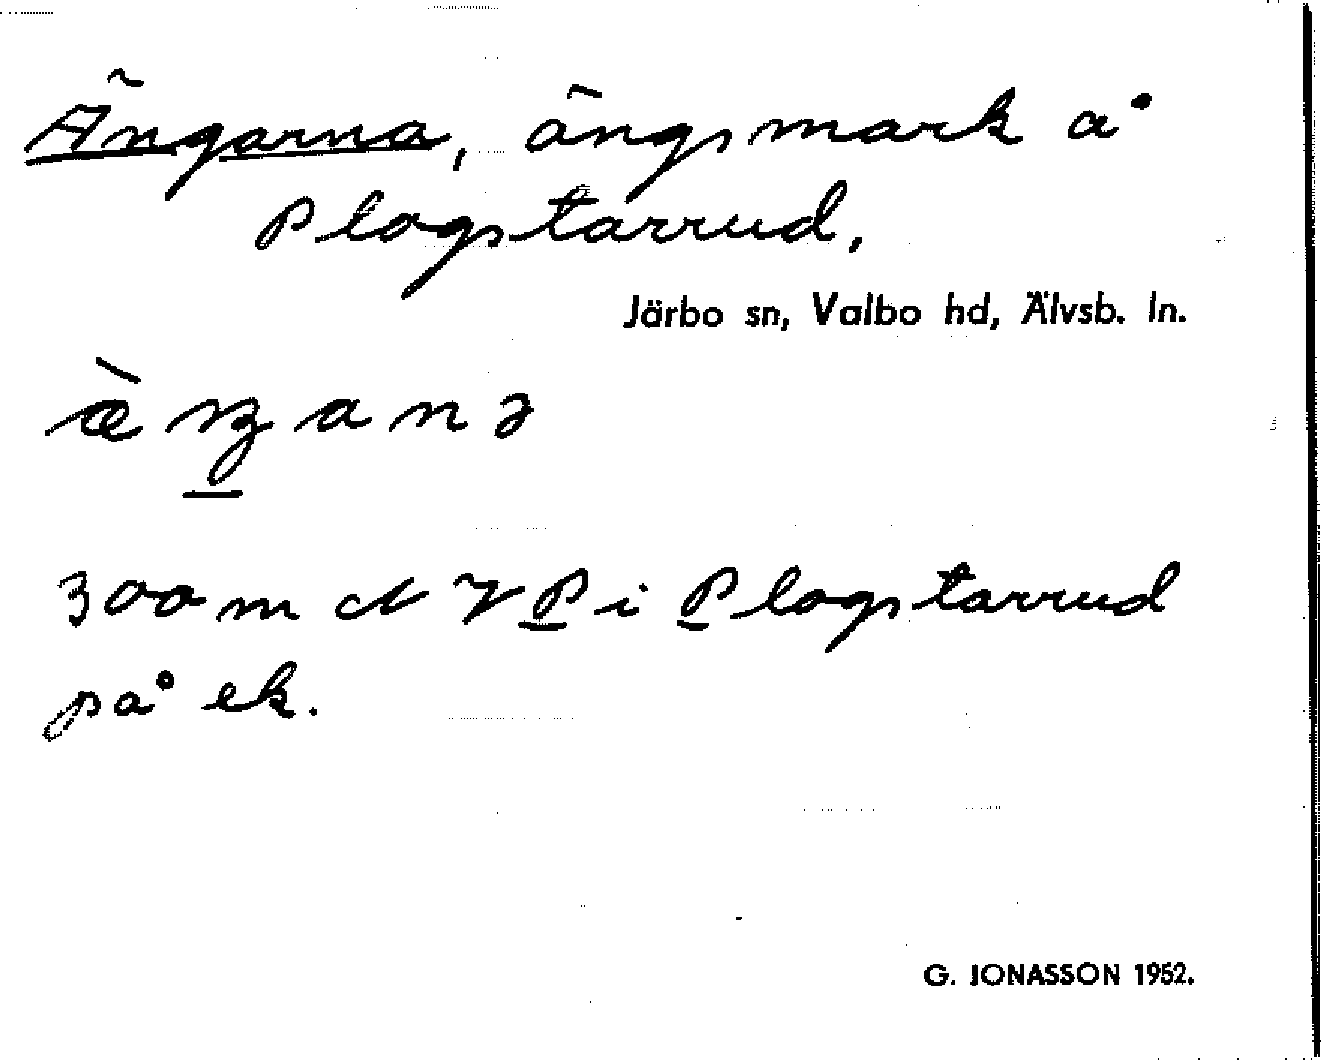 Ängarna, ängsmark å
Plogstarrud,
Järbo sn, Valbo hd, Älvsb. ln.
æ̀ŋanə
300 m N V P i Plogstarrud
på ek.
G. JONASSON 1952.